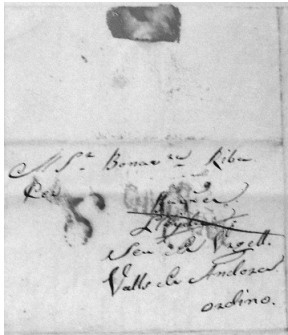 A Sr. Bonavra. Riba
Por
Lleyda
Seu de Urgell.
Valls de Andorra
ordino.